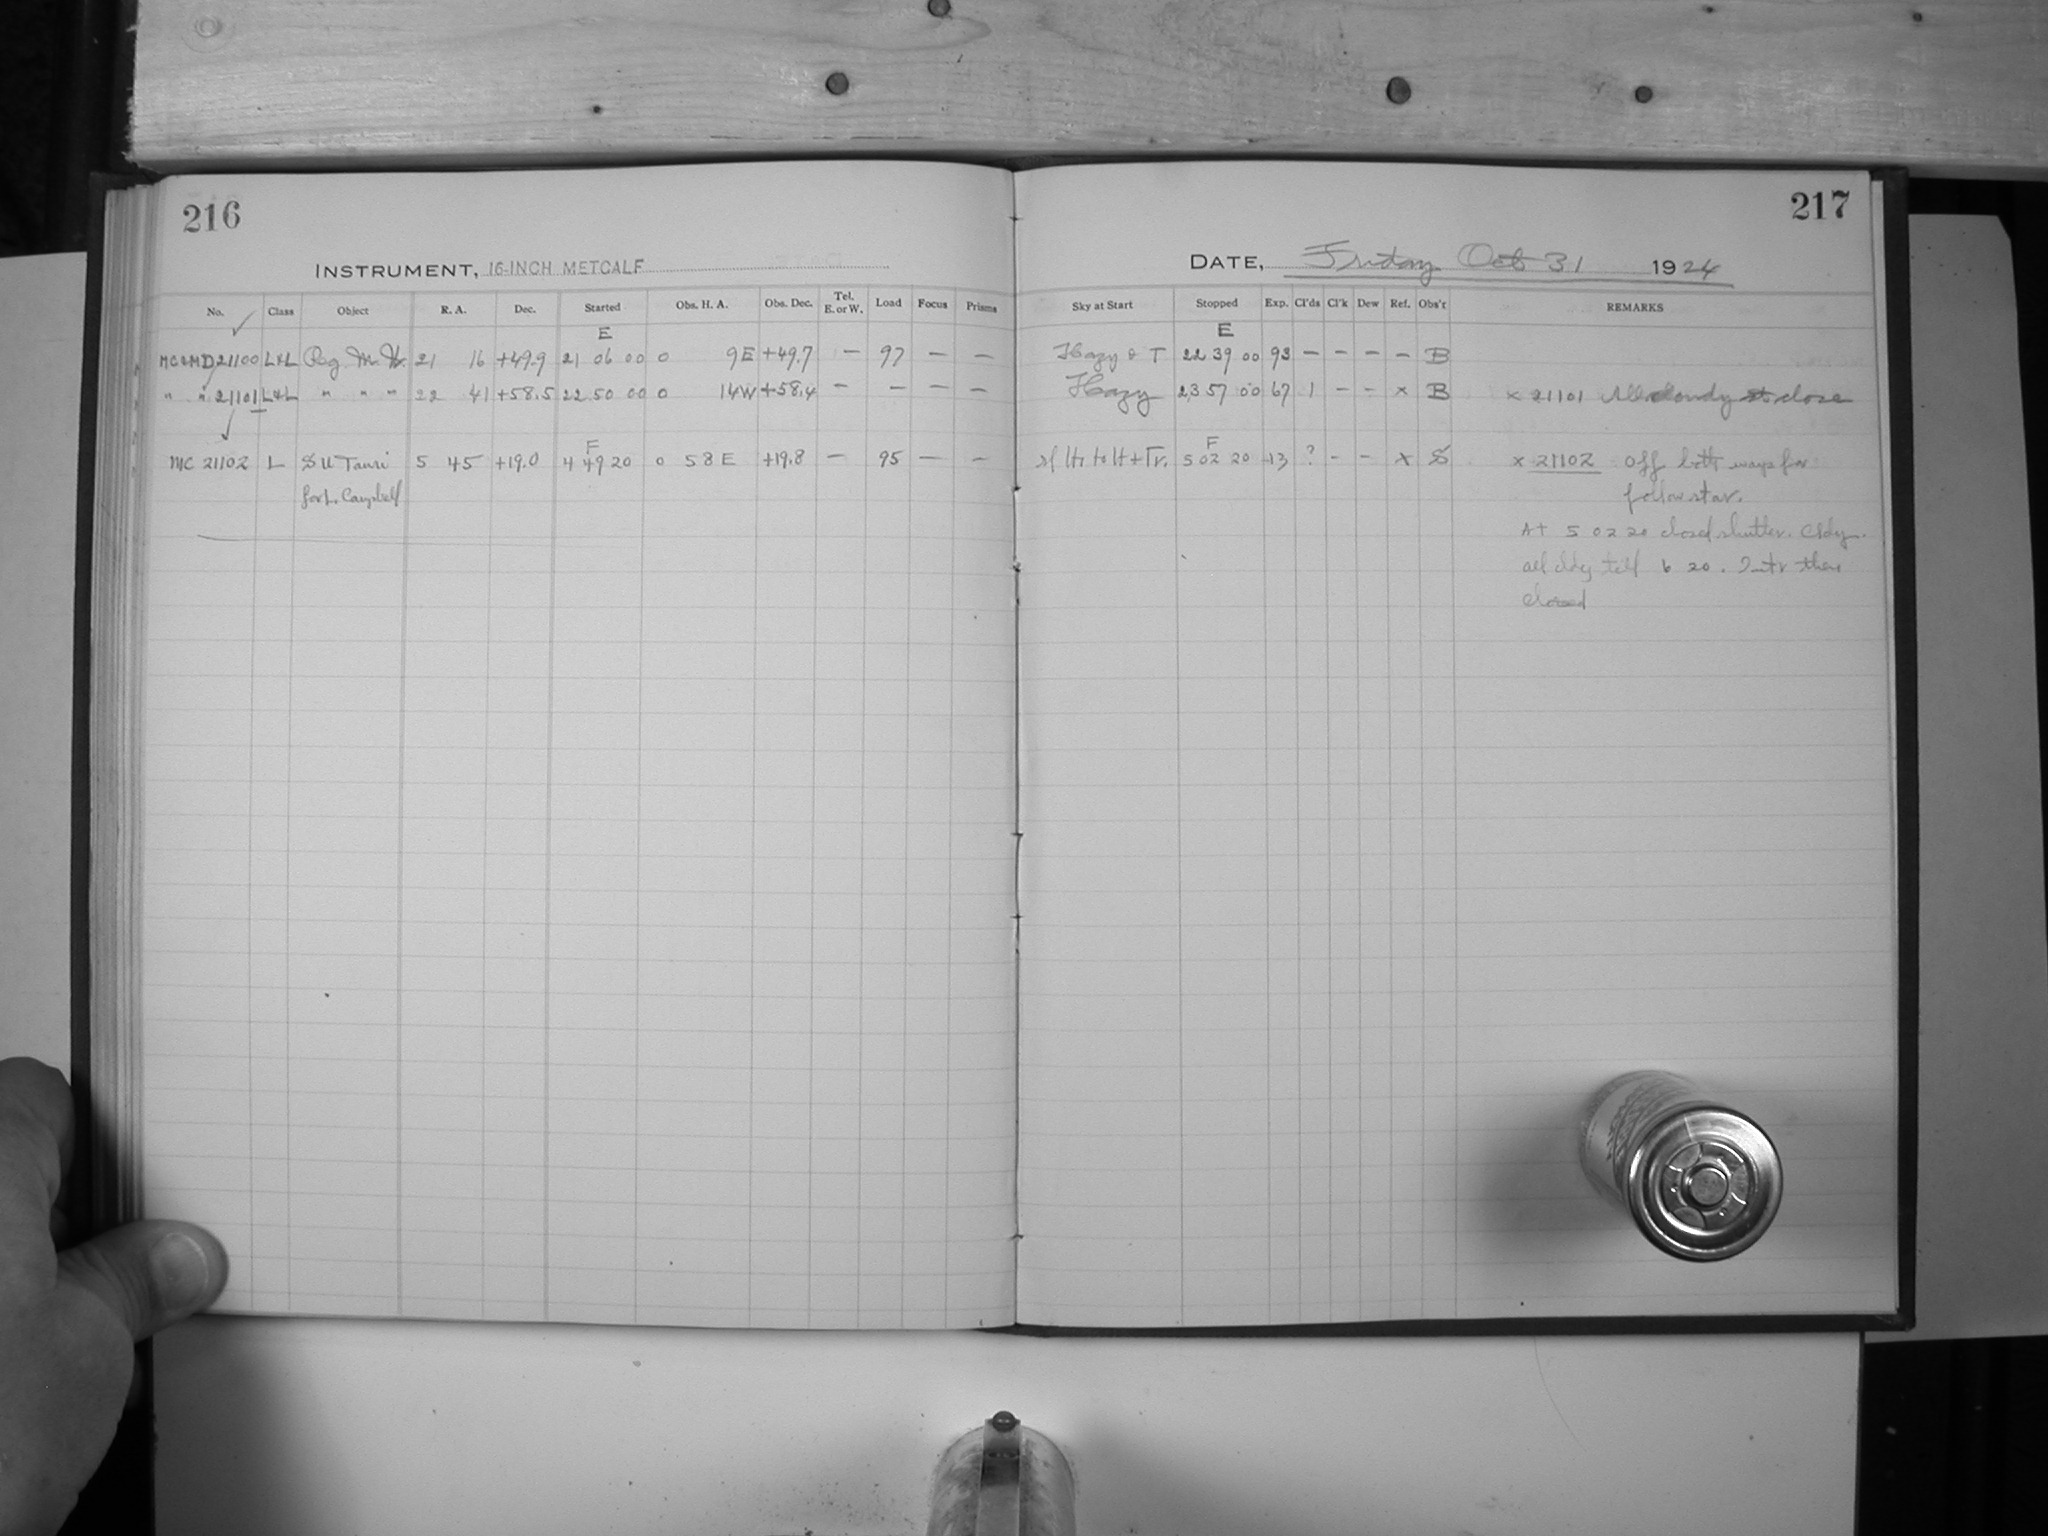 216
217
INSTRUMENT, 16-INCH METCALF
DATE, Friday Oct 31 1924
No. Class Object R. A. Dec. Started Obs. H. A. Obs. Dec. Tel. E. or W. Load Focus Prisms
Sky at Start Stopped Exp. Cl'ds Cl'k Dew Ref. Obs'r REMARKS
E E
MC&MD 21100 L+L Reg M. W. 21 16 +49.9 21 06 00 0 9E +49.7 — 97 — — Hazy & T 22 39 00 93 — — — — B
" " 21101 L+L " " " 22 41 +58.5 22 50 00 0 14W +58.4 — — — — Hazy 23 57 00 67 1 — — x B x 21101 All cloudy at close
F F
MC 21102 L SU Tauri 5 45 +19.0 4 49 20 0 58 E +19.8 — 95 — — H + Tr. 5 02 20 13 ? — — x S x 21102 Off both ways for
for L. Campbell follow star.
At 5 02 20 closed shutter. Cldy.
all cldy till 6 20. then
closed